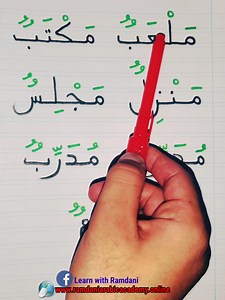 مَلْعَبٌ مَكْتَبٌ
مَنْزِلٌ مَجْلِسٌ
مُدَرِّبٌ
Learn with Ramdani
www.ramdaniarabicacademy.online